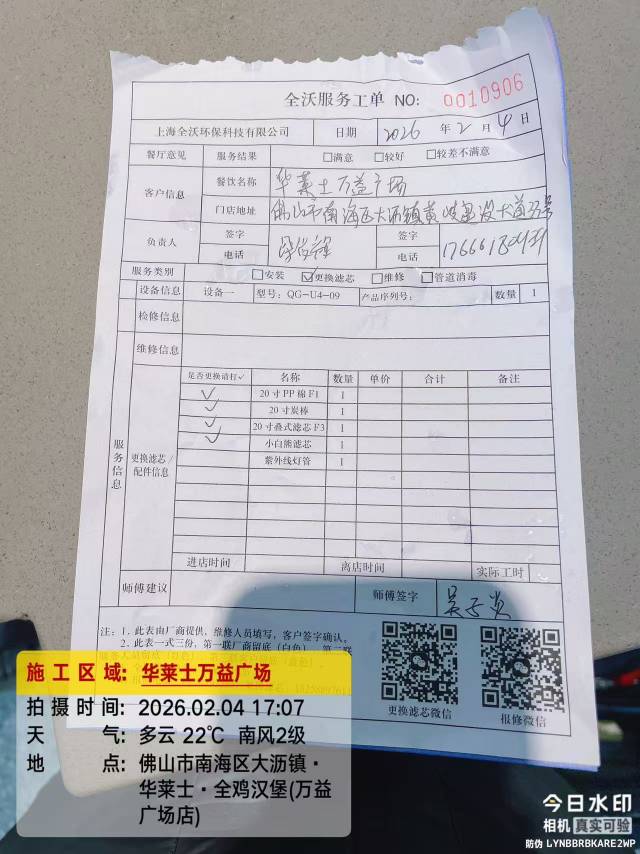 全沃服务工单 NO: 0010906
上海全沃环保科技有限公司 日期 2026 年 2 月 4 日
餐厅意见 服务结果 □满意 □较好 □较差不满意
客户信息 餐饮名称 华莱士万益广场
门店地址 佛山市南海区大沥镇黄岐
负责人 签字 签字
电话 电话
服务类别 □安装 ☑更换滤芯 □维修 □管道消毒
设备信息 设备一 型号: QG-U4-09 产品序列号: 数量 1
检修信息
维修信息
服务信息 更换滤芯/配件信息
是否更换请打✓ 名称 数量 单价 合计 备注
✓ 20寸PP棉F1 1
✓ 20寸炭棒 1
✓ 20寸叠式滤芯F3 1
✓ 小白熊滤芯 1
紫外线灯管 1
进店时间 离店时间 实际工时
师傅建议 师傅签字
注: 1. 此表由厂商提供, 维修人员填写, 客户签字确认。
2. 此表一式三份, 第一联厂商留底(白色)
更换滤芯微信 报修微信
施工区域: 华莱士万益广场
拍摄时间: 2026.02.04 17:07
天气: 多云 22℃ 南风2级
地点: 佛山市南海区大沥镇·
华莱士·全鸡汉堡(万益
广场店)
今日水印
相机 真实可验
防伪 LYNBBRBKARE2WP